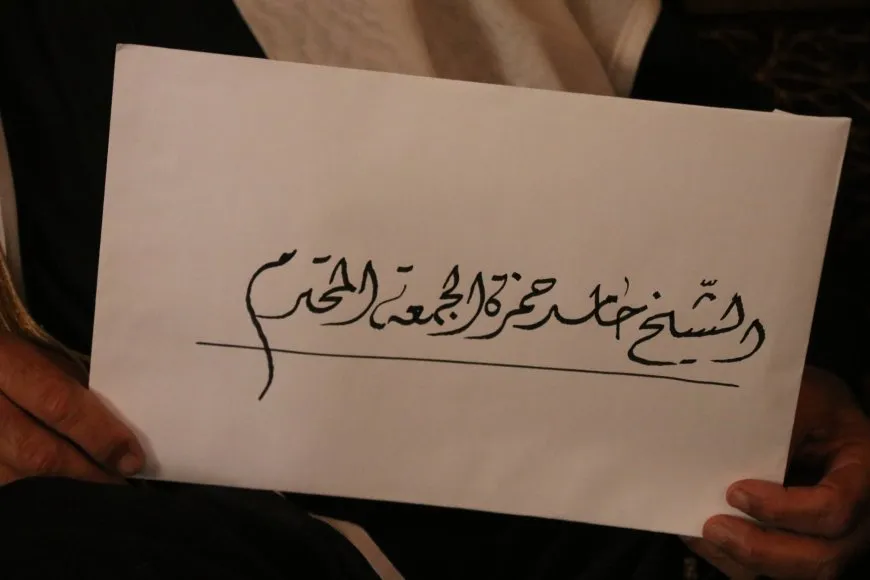 الشيخ حامد حمزة الجمعة المحترم